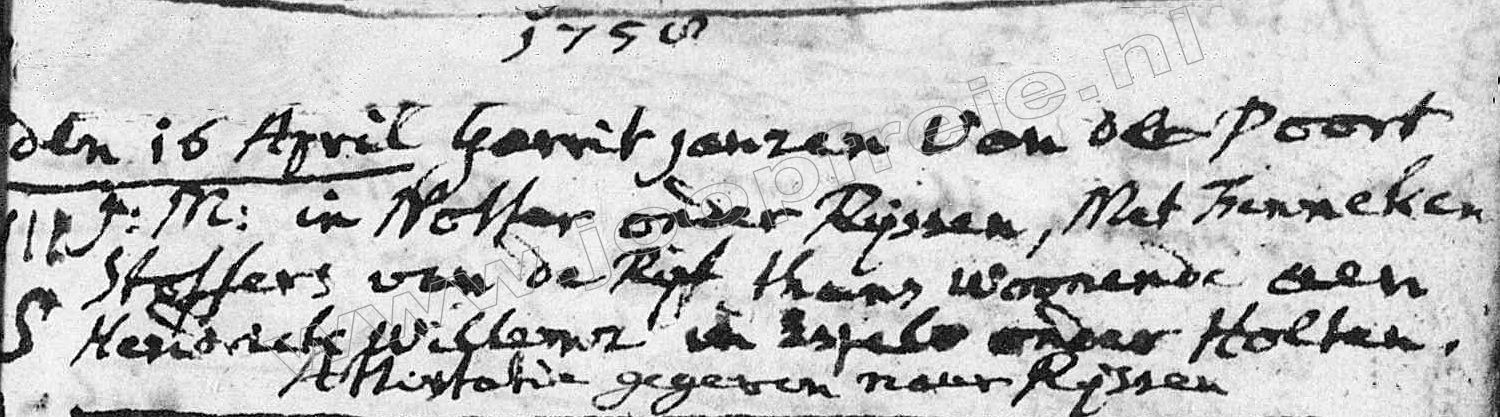 1758
den 16 April Gerrit janzen Van de Poort
III J: M: in Notter onder Ryssen, Met Fenneken
Stoffers van de Rijf thans woonende aen
S Hendrick Willemz in onder Holten.
Attestatie gegeven naer Ryssen
www.joopfreie.nl